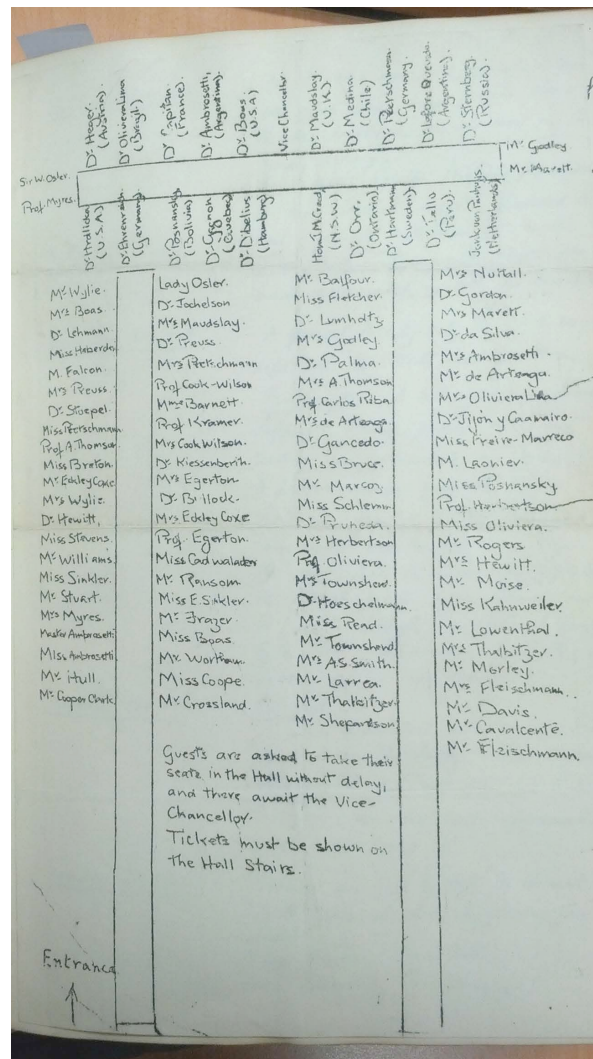 Dr. Heger (Austria).
Dr Oliviera Lima (Brazil)
Dr Capitan (France).
Dr. Ambrosetti, (Argentina)
Dr. Boas (U.S.A)
Vice Chancellor.
Dr. Maudslay (U.K.)
Dr. Medina (Chile)
Dr. Peetschmann (Germany.
Dr. Lafone Quevedo (Argentina).
Dr. Sternberg. (Russia).
Sir W. Osler.
Mr. Godley
Prof. Myres.
Mr. Marett.
Dr. Hrdlicka (U.S.A.)
Dr. Ehrenreich (Germany)
Dr. Posnansky (Bolivia)
Dr. Gagnon (Quebec)
Dr. Dibelius (Hamburg)
(N.S.W.)
Dr. Orr. (Ontario)
Dr. Hartman (Sweden)
Dr. Tello (Peru)
(Netherlands)
Mr. Wylie.
Mrs Boas
Dr. Lehmann
M. Falcon.
Mrs Preuss.
Dr. Stoepel.
Miss Peetschmann
Prof A. Thomson
Miss Breton.
Mr. Eckley Coxe
Mrs Wylie.
Dr. Hewitt,
Miss Stevens.
Mr. Williams.
Miss Sinkler.
Mr. Stuart.
Mrs Myres
Master Ambrosetti
Miss Ambrosetti
Mr. Hull.
Mr. Cooper Clark
Lady Osler.
Dr. Jochelson
Mrs Maudslay.
Dr. Preuss.
Mrs Peetschmann
Prof Cook-Wilson
Mme Barnett.
Prof Kramer.
Mrs Cook Wilson.
Dr. Kiessenberth.
Mrs Egerton
Dr. Bullock.
Mrs Eckley Coxe
Prof. Egerton.
Miss Cadwalader
Mr. Ransom.
Miss E. Sinkler.
Mr. Frazer.
Miss Boas.
Mr. Wortham.
Miss Coope.
Mr. Crossland.
Mr. Balfour.
Miss Fletcher.
Dr. Lumholtz
Mrs Godley.
Dr. Palma.
Mrs A Thomson
Prof Carlos Paba.
Mrs de Arteaga.
Dr. Gancedo.
Miss Bruce.
Mr. Marcoy.
Miss Schlemm
Dr. Pruneda.
Mrs Herbertson
Prof. Oliviera.
Mrs Townshend.
Dr Hoeschelmann.
Miss Pend.
Mr. Townshend.
Mrs A.S. Smith.
Mr. Larrea.
Mr. Thalbitzer.
Mr. Shepardson
Mrs Nuttall.
Dr. Gordon.
Mrs Marett.
Dr. da Silva.
Mrs Ambrosetti.
Mr. de Arteaga.
Mrs Oliviera Lima
Dr. Jijón y Caamairo.
Miss Freire-Marreco
M. Laonier.
Miss Poshansky
Prof. Herbertson
Miss Oliviera.
Mr. Rogers
Mrs Hewitt.
Mr. Moise.
Miss Kahnweiler.
Mr. Lowenthal.
Mrs Thalbitzer.
Mr. Morley.
Mrs Fleischmann.
Mr. Davis.
Mr. Cavalcenté.
Mr. Fleischmann.
Guests are asked to take their
seats in the Hall without delay,
and there await the Vice-
Chancellor.
Tickets must be shown on
the Hall Stairs.
Entrance